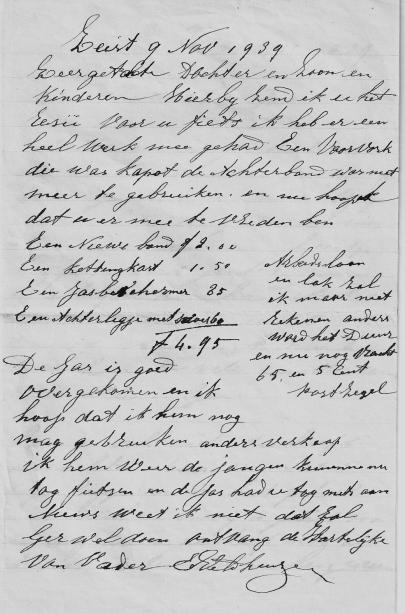 Zeist 9 Nov 1939
Zeergeachte Dochter en Zoon en
Kinderen Hierby Zend ik u het
voor u fiets ik heb er een
heel werk mee gehad Een Voorvork
die was kapot de Achterband was niet
meer te gebruiken. en nu hoop ik
dat u er mee te Vreden ben
Een Nieuwe band f 2.00
Een kettingkast 1.50
Een Jasbeschermer 35
Een Achterligge met
f 4.95
Arbeidsloon
en lak Zal
ik maar niet
Rekenen anders
word het Duur
en nu nog Vracht
65 en 5 Cent
Postzegel
De Jas is goed
overgekomen en ik
hoop dat ik hem nog
mag gebruiken anders verkoop
ik hem Weer de jongen kunnen nu
tog fietsen en de Jas had u tog niets aan
Nieuws Weet ik niet dat Zal
Ger wel doen ontvang de Hartelijke
Van Vader